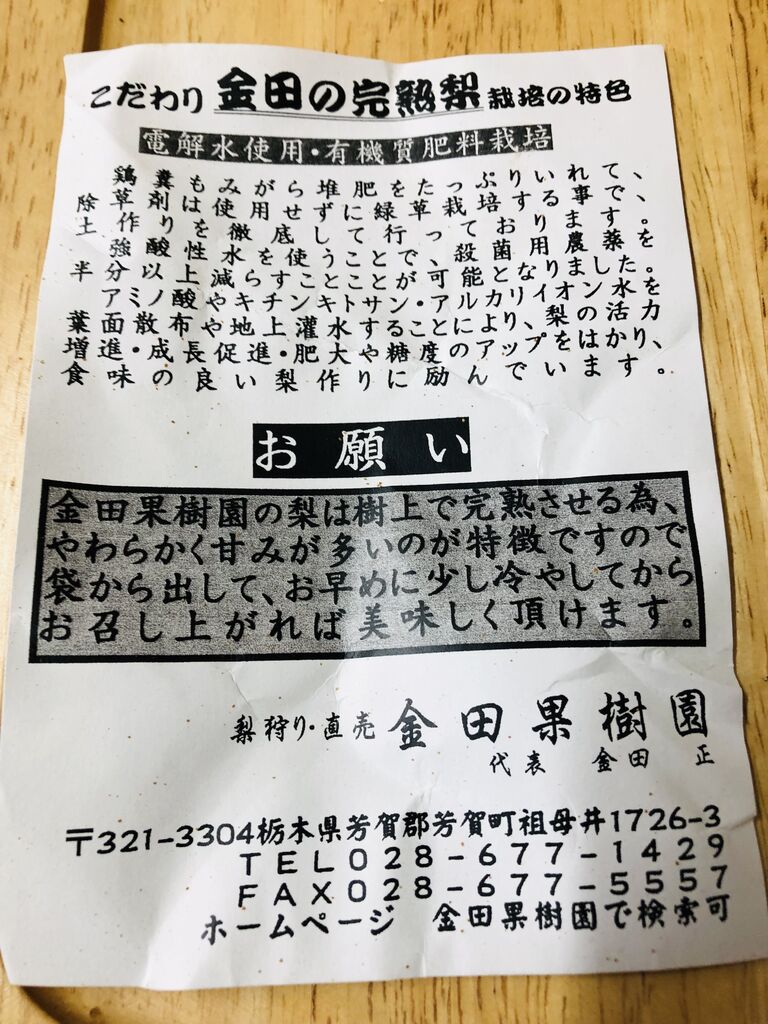 こだわり 金田の完熟梨 栽培の特色
電解水使用・有機質肥料栽培
鶏糞もみがら堆肥をたっぷりいれて、
除草剤は使用せずに緑草栽培する事で、
土作りを徹底して行っております。
強酸性水を使うことで、殺菌用農薬を
半分以上減らすことことが可能となりました。
アミノ酸やキチンキトサン・アルカリイオン水を
葉面散布や地上灌水することにより、梨の活力
増進・成長促進・肥大や糖度のアップをはかり、
食味の良い梨作りに励んでいます。
お願い
金田果樹園の梨は樹上で完熟させる為、
やわらかく甘みが多いのが特徴ですので
袋から出して、お早めに少し冷やしてから
お召し上がれば美味しく頂けます。
梨狩り・直売 金田果樹園
代表 金田 正
〒321-3304栃木県芳賀郡芳賀町祖母井1726-3
TEL028-677-1429
FAX028-677-5557
ホームページ 金田果樹園で検索可